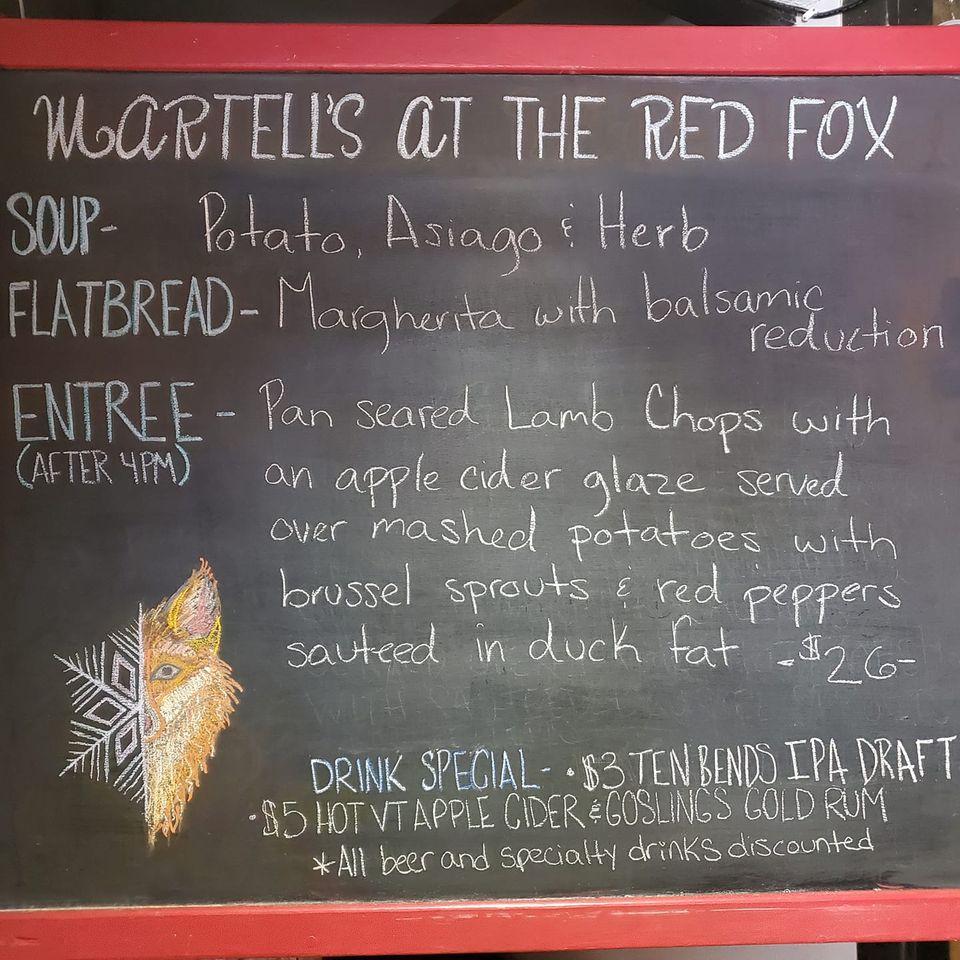 MARTELL'S AT THE RED FOX
SOUP- Potato, Asiago & Herb
FLATBREAD- Margherita with balsamic
reduction
ENTREE - Pan seared Lamb Chops with
(AFTER 4PM) an apple cider glaze served
over mashed potatoes with
brussel sprouts & red peppers
sauteed in duck fat -$26-
DRINK SPECIAL- •$3 TEN BENDS IPA DRAFT
•$5 HOT VT APPLE CIDER & GOSLINGS GOLD RUM
*All beer and specialty drinks discounted